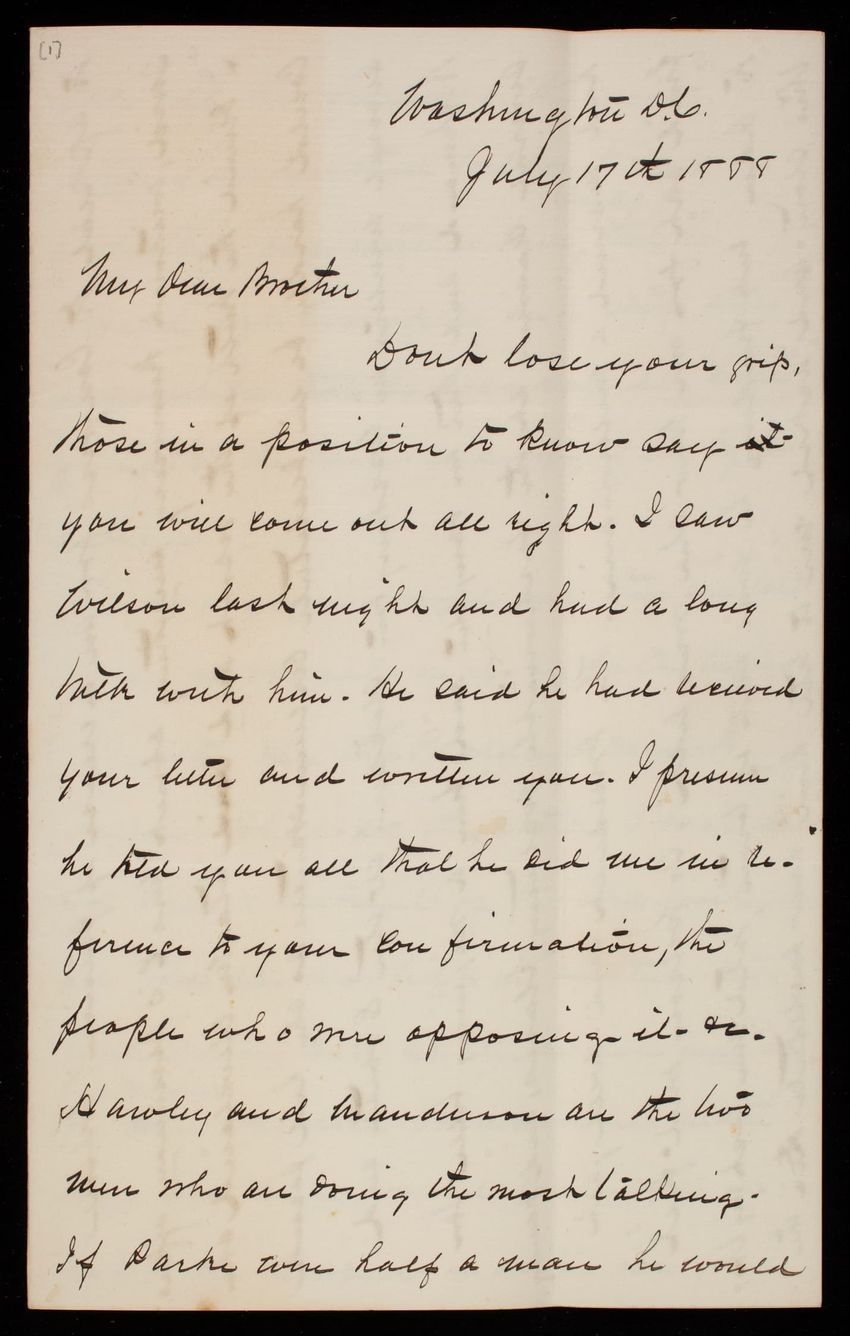 (1)
Washington D.C.
July 17th 1888
My Dear Brother
Dont lose your grip,
those in a position to know say it
you will come out all right. I saw
Wilson last night and had a long
talk with him. He said he had received
your letter and written you. I presume
he told you all that he did me in re-
ference to your confirmation, the
people who were opposing it &c.
Hawley and Manderson are the two
men who are doing the most talking.
If Parke were half a man he would